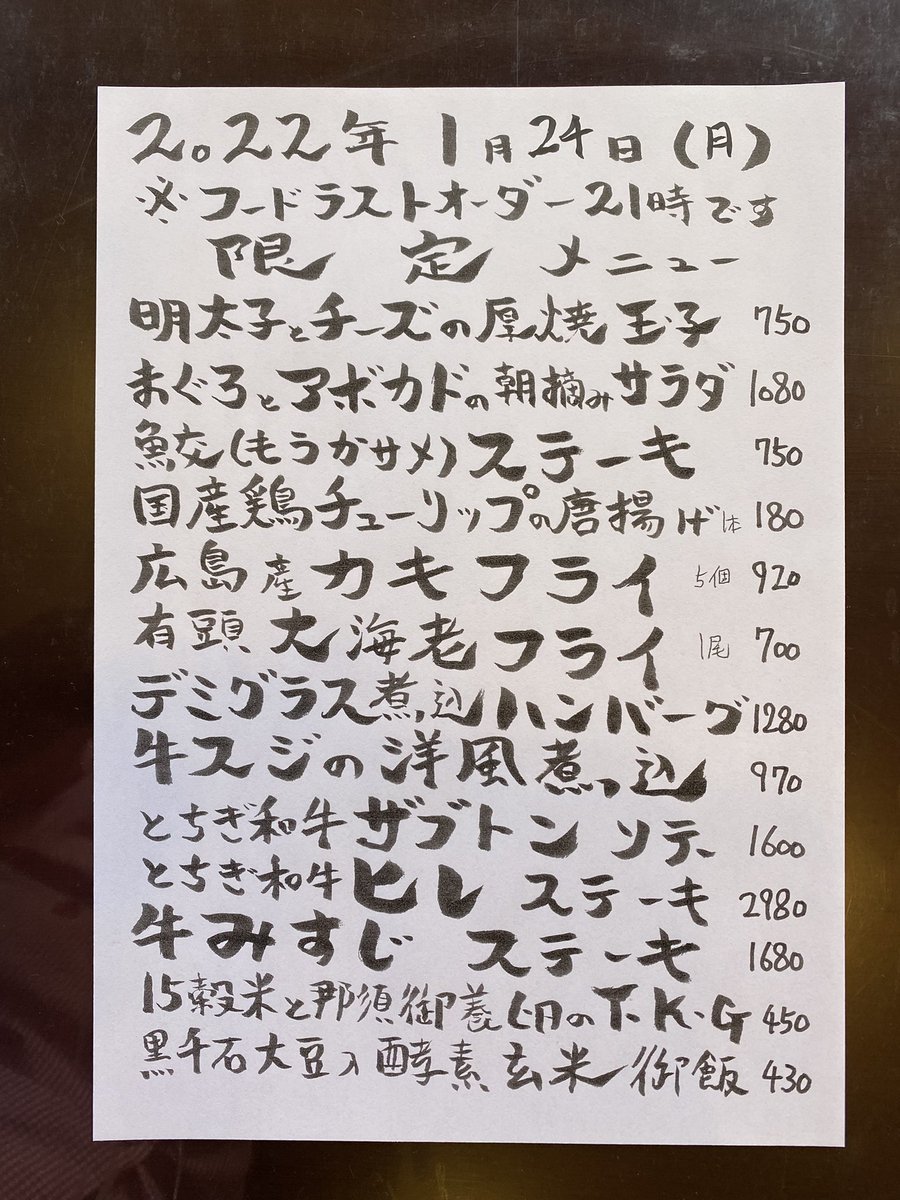 2022年 1月24日(月)
※フードラストオーダー21時です
限定メニュー
明太子とチーズの厚焼玉子 750
まぐろとアボカドの朝摘みサラダ 1080
鮫(もうかサメ)ステーキ 750
国産鶏チューリップの唐揚げ1本 180
広島産カキフライ 5個 920
有頭大海老フライ 1尾 700
デミグラス煮込ハンバーグ 1280
牛スジの洋風煮込 970
とちぎ和牛ザブトンソテー 1600
とちぎ和牛ヒレステーキ 2980
牛みすじステーキ 1680
15穀米と那須御養卵のT.K.G 450
黒千石大豆入酵素玄米御飯 430